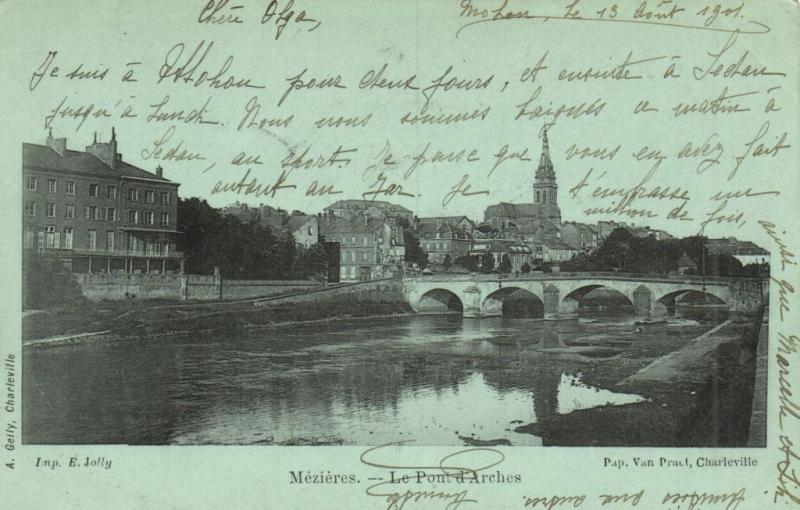 Chère Olga,
Mohon, le 13 Août 1901.
Je suis à Mohon pour deux jours, et ensuite à Sedan
jusqu'à Lundi. Nous nous sommes baignés ce matin à
Sedan, au sport. Je pense que vous en avez fait
autant au Jar. Je t'embrasse un
million de fois,
ainsi que Marcelle et
A. Gelly, Charleville
Imp. E. Jolly
Pap. Van Praet, Charleville
Mézières. — Le Pont d'Arches